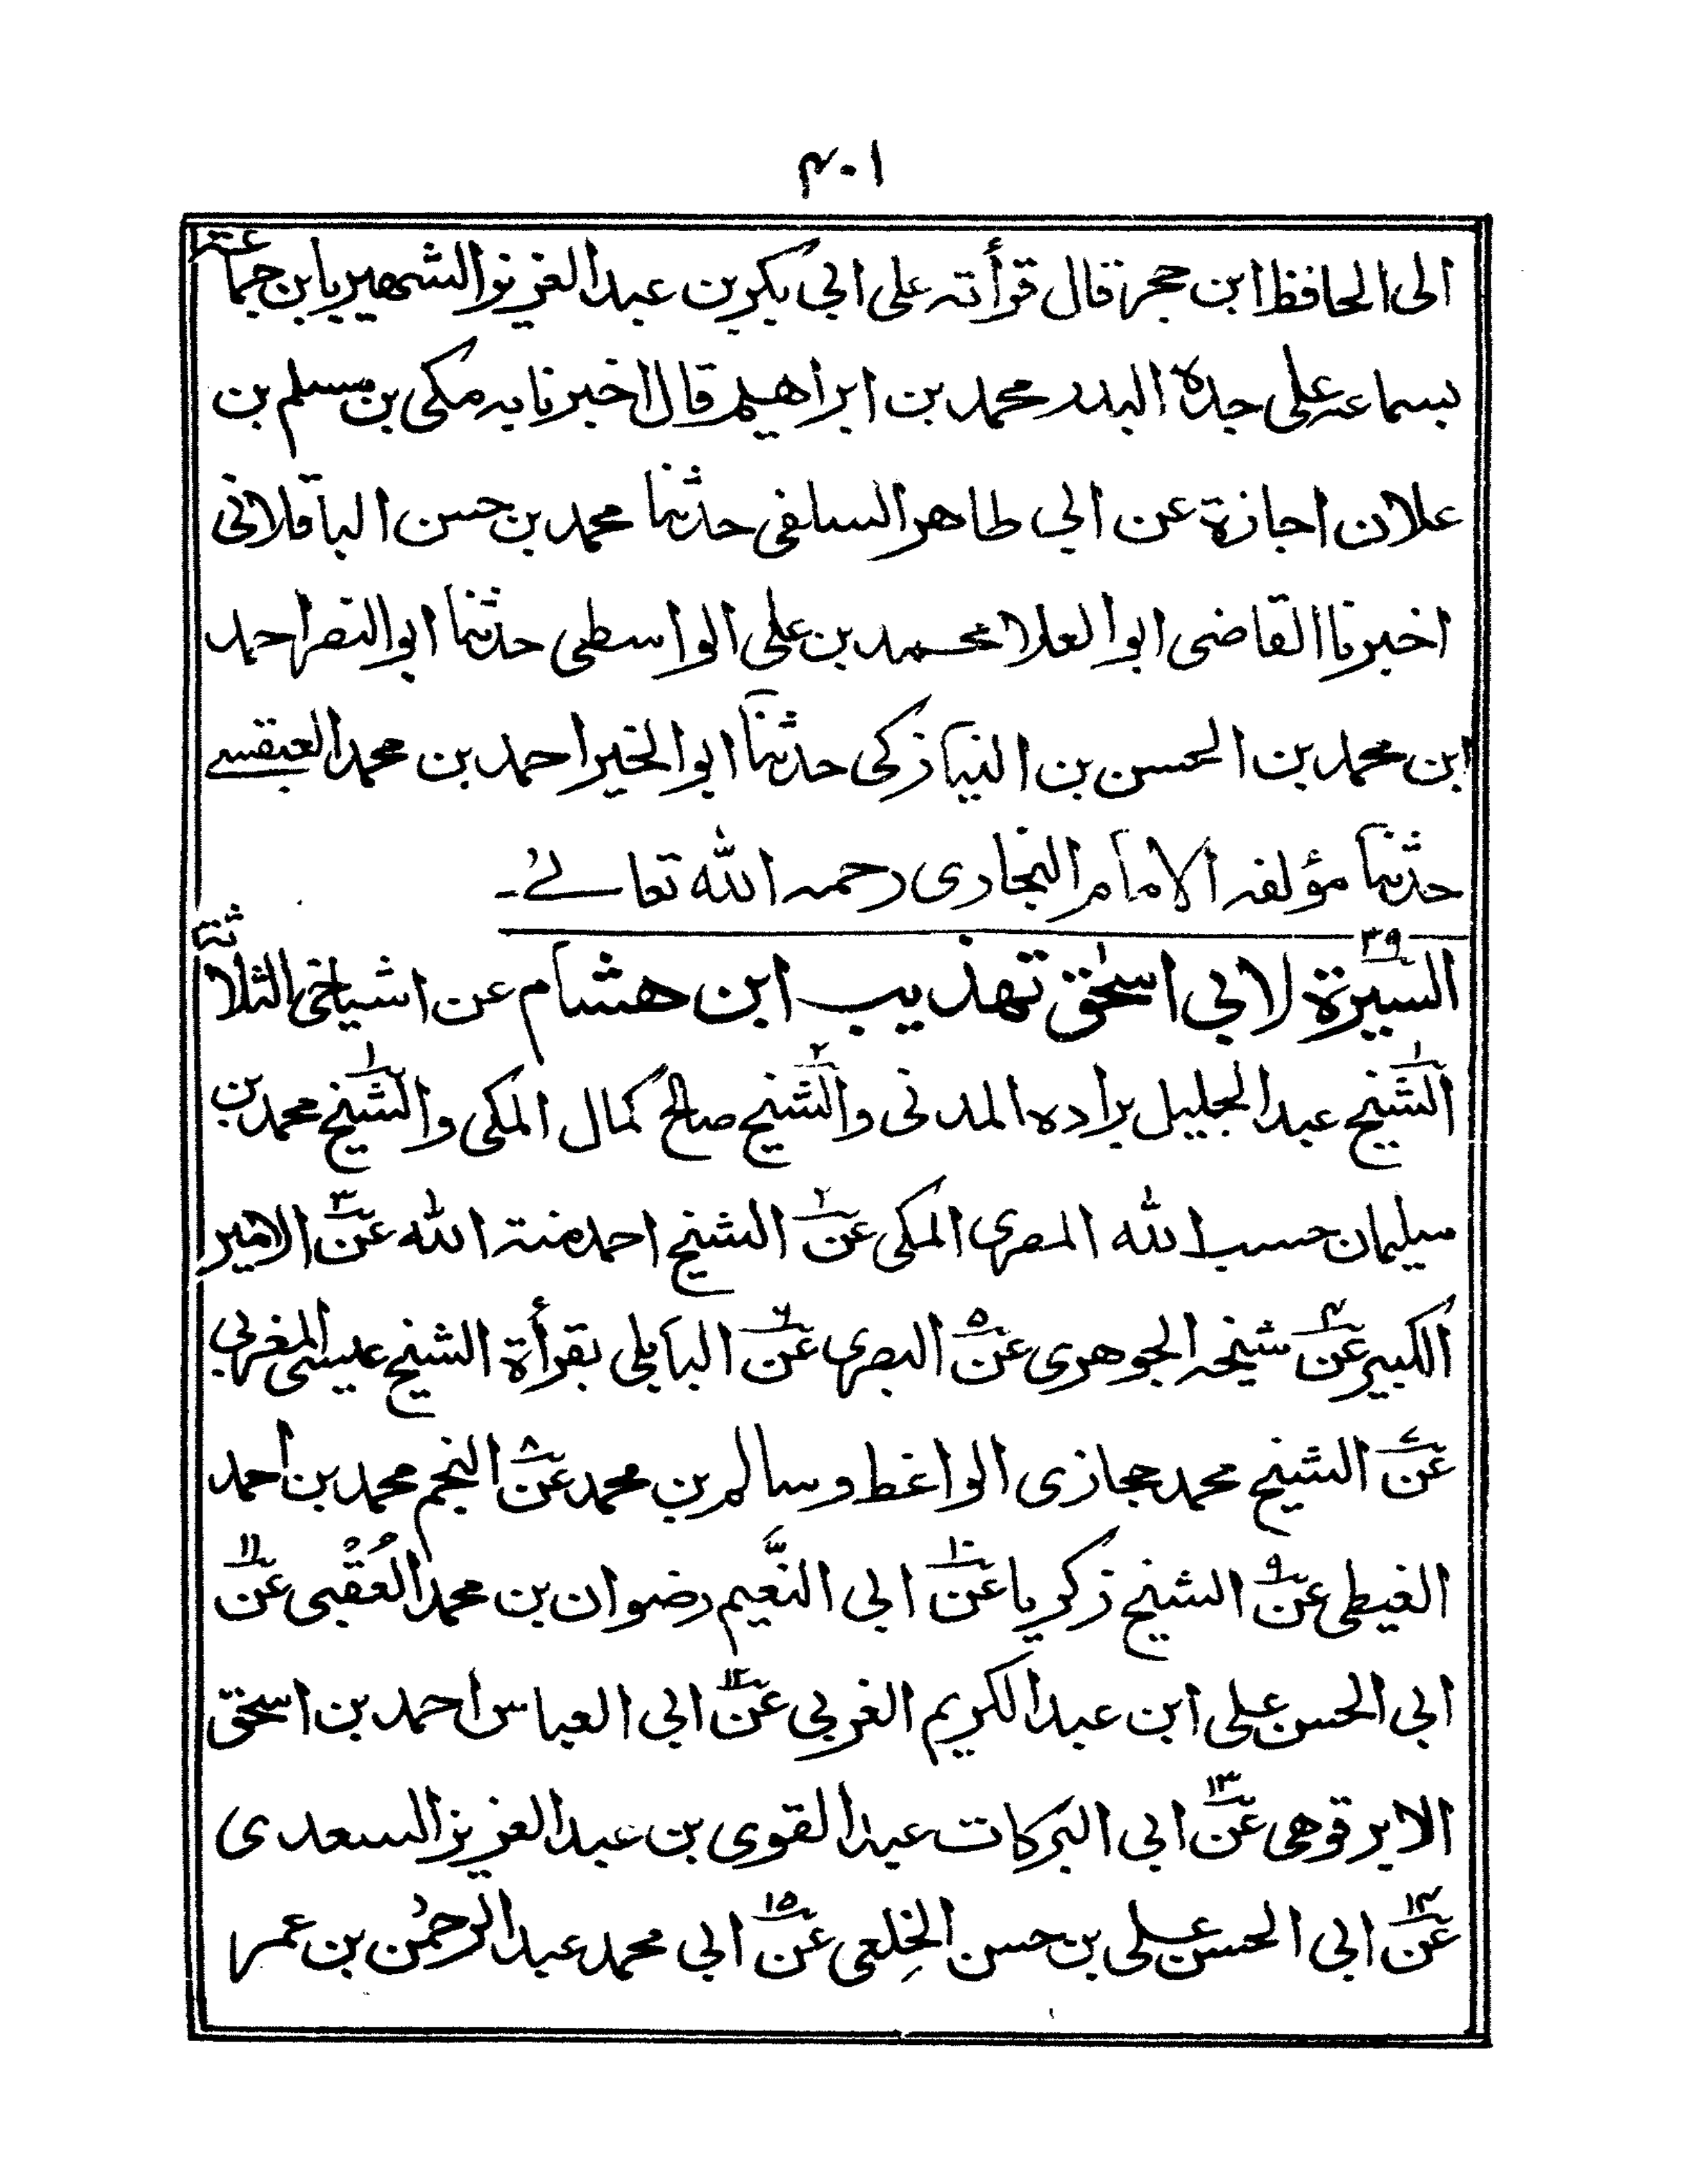 ۴۰۱
الى الحافظ ابن حجر قال قرأته على ابي بكر بن عبد العزيز الشهير بابن جماعة
بسماعه على جده البدر محمد بن ابراهيم قال اخبرنا به مكى بن مسلم بن
علان اجازة عن ابي طاهر السلفى حدثنا محمد بن حسن الباقلانى
اخبرنا القاضى ابو العلا محمد بن على الواسطى حدثنا ابو النصر احمد
ابن محمد بن الحسن بن النيازكى حدثنا ابو الخير احمد بن محمد العبقسے
حدثنا مؤلفه الامام البخارى رحمه الله تعالےٰ۔
۳۹ السيرة لابي اسحٰق تهذيب ابن هشام عن اشياخى الثلاثة
۱ الشيخ عبد الجليل براده المدنى و۲ الشيخ صالح كمال المكى و۱ الشيخ محمد بن
سليمان حسب الله المصرى المكى ۲ عن الشيخ احمد منة الله ۳ عن الامير
الكبير ۴ عن شيخه الجوهرى ۵ عن البصرى ۶ عن البابلى بقرأة الشيخ عيسى المغربي
۷ عن الشيخ محمد حجازى الواغظ وسالم بن محمد ۸ عن النجم محمد بن احمد
الغيطى ۹ عن الشيخ زكريا ۱۰ عن ابى النَّعيم رضوان بن محمد العُقْبى ۱۱ عن
ابى الحسن على ابن عبد الكريم الغربي ۱۲ عن ابى العباس احمد بن اسحٰق
الابرقوهى ۱۳ عن ابى البركات عبد القوى بن عبد العزيز السعدى
۱۴ عن ابى الحسن على بن حسن الخِلعى ۱۵ عن ابي محمد عبد الرحمٰن بن عمر